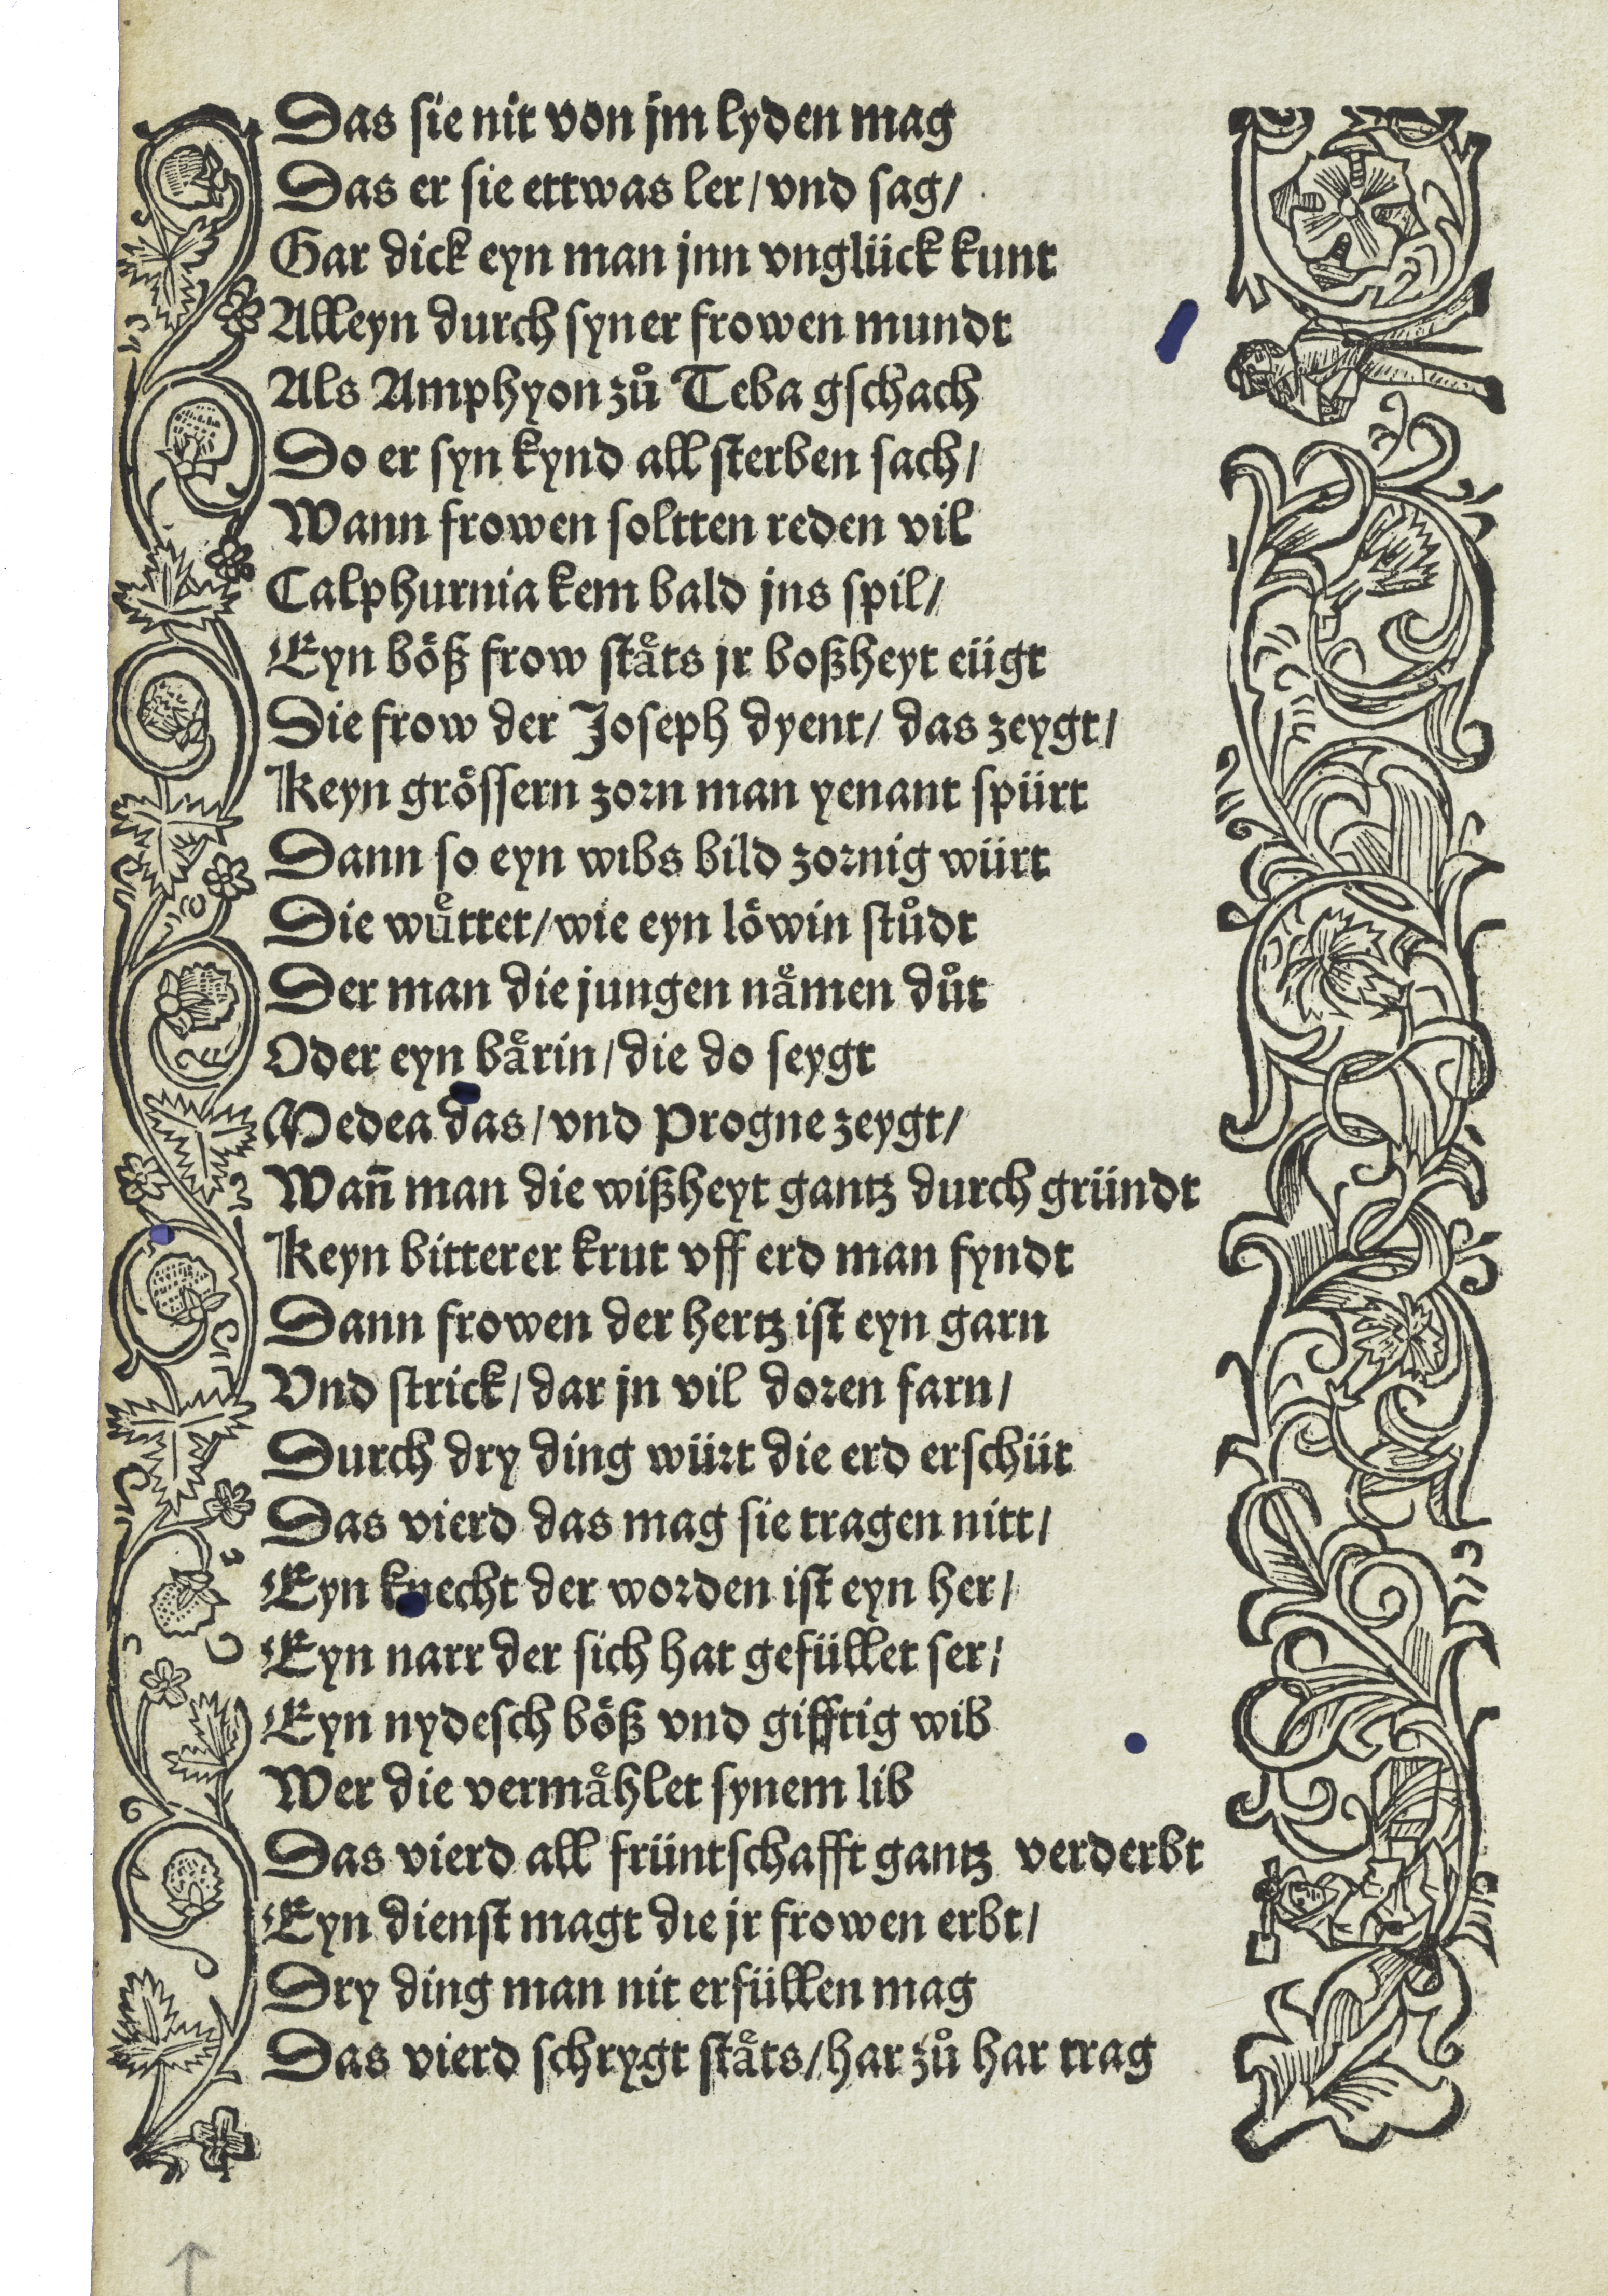 Das sie nit von jm lyden mag
Das er sie ettwas ler/vnd sag/
Gar dick eyn man jnn vnglück kunt
Alleyn durch syner frowen mundt
Als Amphyon zů Teba gschach
Do er syn kynd all sterben sach/
Wann frowen soltten reden vil
Calphurnia kem bald jns spil/
Eyn böß frow stäts jr boßheyt eügt
Die frow der Joseph dyent/ das zeygt/
Keyn grössern zorn man yenant spürt
Dann so eyn wibs bild zornig würt
Die wüttet/wie eyn löwin stůdt
Der man die jungen nämen důt
Oder eyn bärin/die do seygt
Medea das/vnd Progne zeygt/
Wan̄ man die wißheyt gantz durch gründt
Keyn bitterer krut vff erd man fyndt
Dann frowen der hertz ist eyn garn
Vnd strick/dar jn vil doren farn/
Durch dry ding würt die erd erschüt
Das vierd das mag sie tragen nitt/
Eyn knecht der worden ist eyn her/
Eyn narr der sich hat gefüllet ser/
Eyn nydesch böß vnd gifftig wib
Wer die vermählet synem lib
Das vierd all früntschafft gantz verderbt
Eyn dienst magt die jr frowen erbt/
Dry ding man nit erfüllen mag
Das vierd schrygt stäts/har zů har trag